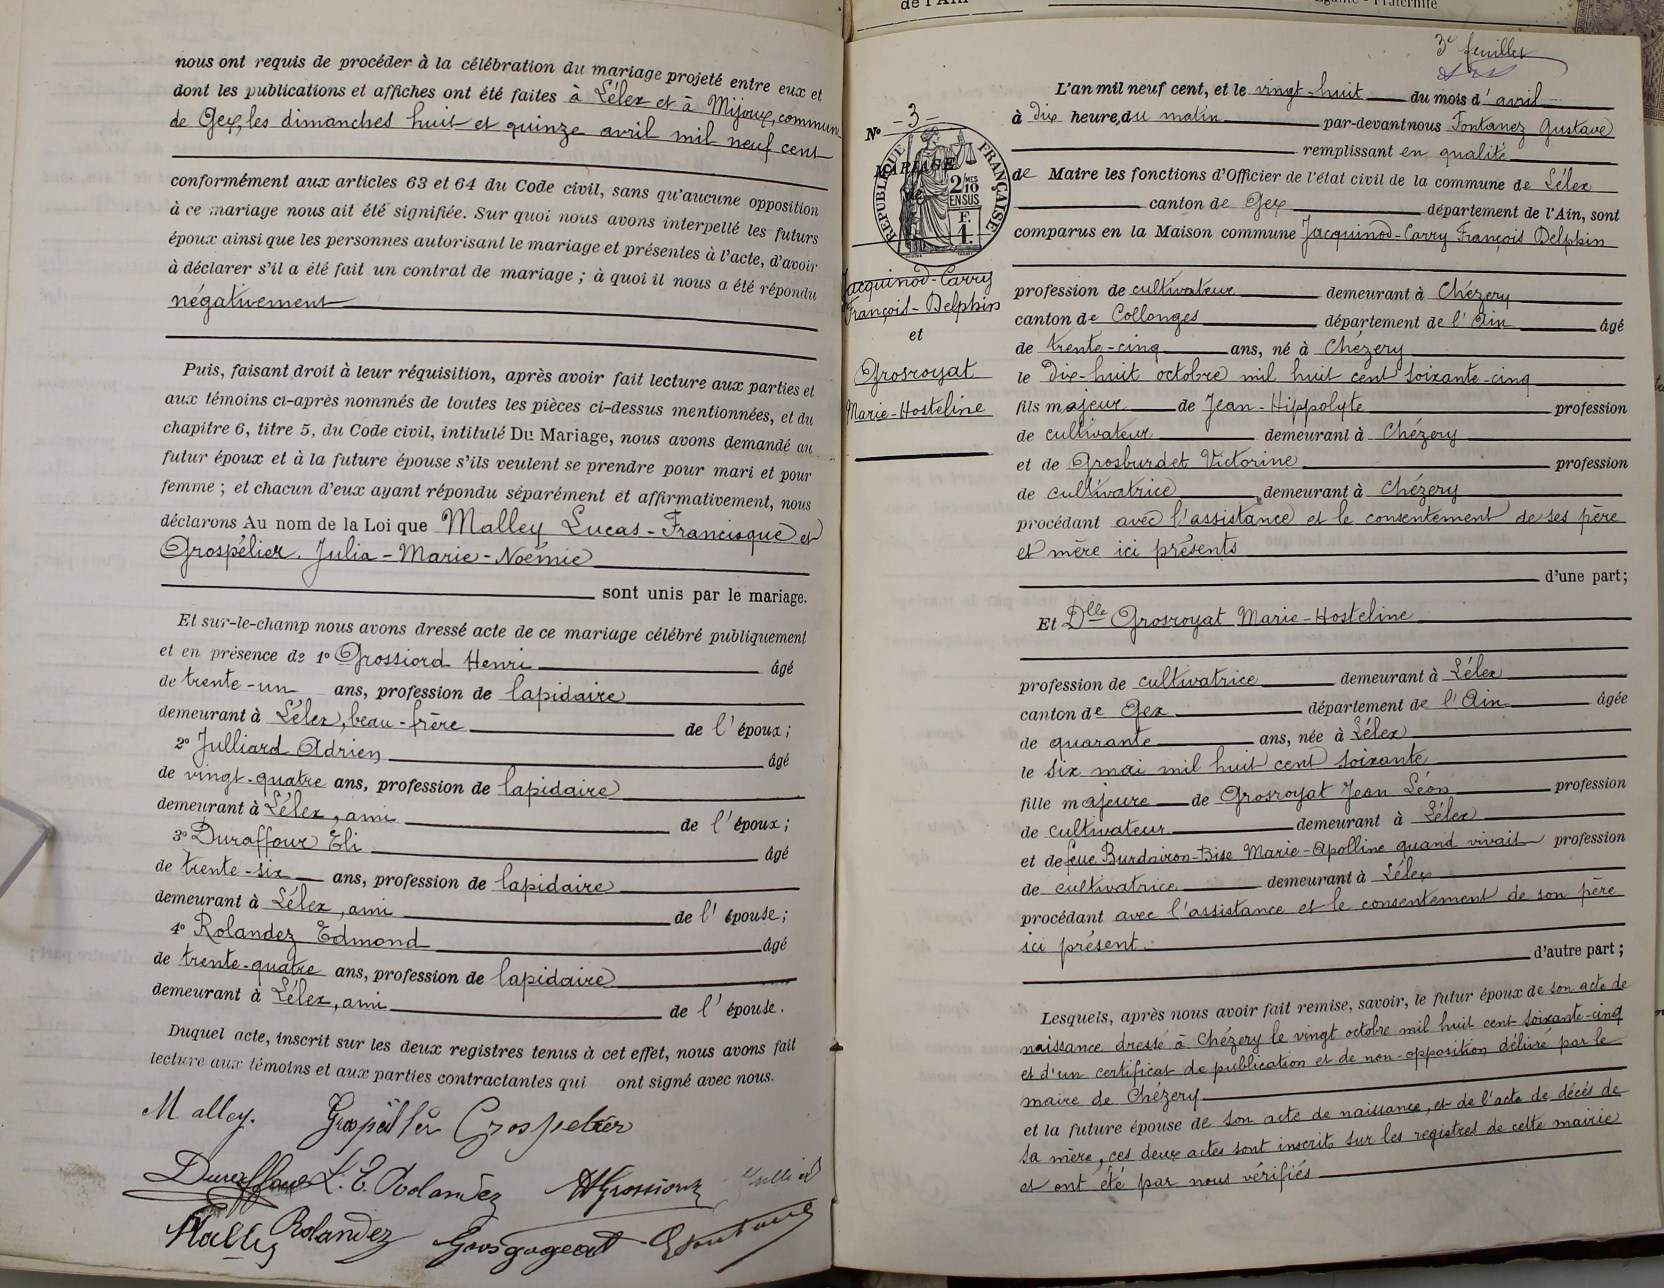 nous ont requis de procéder à la célébration du mariage projeté entre eux et
dont les publications et affiches ont été faites à Lélex et à Mijoux, commune
de Gex, les dimanches huit et quinze avril mil neuf cent
conformément aux articles 63 et 64 du Code civil, sans qu'aucune opposition
à ce mariage nous ait été signifiée. Sur quoi nous avons interpellé les futurs
époux ainsi que les personnes autorisant le mariage et présentes à l'acte, d'avoir
à déclarer s'il a été fait un contrat de mariage ; à quoi il nous a été répondu
négativement
Puis, faisant droit à leur réquisition, après avoir fait lecture aux parties et
aux témoins ci-après nommés de toutes les pièces ci-dessus mentionnées, et du
chapitre 6, titre 5, du Code civil, intitulé Du Mariage, nous avons demandé au
futur époux et à la future épouse s'ils veulent se prendre pour mari et pour
femme ; et chacun d'eux ayant répondu séparément et affirmativement, nous
déclarons Au nom de la Loi que Malley Lucas-Francisque et
Grospélier Julia-Marie-Noémie
sont unis par le mariage.
Et sur-le-champ nous avons dressé acte de ce mariage célébré publiquement
et en présence de 1° Grossiord Henri âgé
de trente-un ans, profession de lapidaire
demeurant à Lélex, beau-frère de l'époux ;
2° Julliard Adrien âgé
de vingt-quatre ans, profession de lapidaire
demeurant à Lélex, ami de l'époux ;
3° Duraffour Eli âgé
de trente-six ans, profession de lapidaire
demeurant à Lélex, ami de l'épouse ;
4° Rolandez Edmond âgé
de trente-quatre ans, profession de lapidaire
demeurant à Lélex, ami de l'épouse.
Duquel acte, inscrit sur les deux registres tenus à cet effet, nous avons fait
lecture aux témoins et aux parties contractantes qui ont signé avec nous.
Malley. Grospellier Grospelier
Duraffour L. E. Rolandez HGrossiord Julliard
Malley Rolandez Grosgogeat GFontanez
de l'Ain
Égalité - Fraternité
3e feuillet
N° 3
MARIAGE
de
RÉPUBLIQUE FRANÇAISE
2 MES
10
EN SUS
F.
1.
Jacquinod-Carry
François-Delphin
et
Grosroyat
Marie-Hosteline
L'an mil neuf cent, et le vingt-huit du mois d'avril
à dix heure, du matin par-devant nous Fontanez Gustave
remplissant en qualité
de Maire les fonctions d'Officier de l'état civil de la commune de Lélex
canton de Gex département de l'Ain, sont
comparus en la Maison commune Jacquinod-Carry François Delphin
profession de cultivateur demeurant à Chézery
canton de Collonges département de l'Ain âgé
de trente-cinq ans, né à Chézery
le dix-huit octobre mil huit cent soixante-cinq
fils majeur de Jean-Hippolyte profession
de cultivateur demeurant à Chézery
et de Grosburdet Victorine profession
de cultivatrice demeurant à Chézery
procédant avec l'assistance et le consentement de ses père
et mère ici présents
d'une part ;
Et Dlle Grosroyat Marie-Hosteline
profession de cultivatrice demeurant à Lélex
canton de Gex département de l'Ain âgée
de quarante ans, née à Lélex
le six mai mil huit cent soixante
fille majeure de Grosroyat Jean Léon profession
de cultivateur demeurant à Lélex
et de feue Burdairon-Bise Marie-Apolline quand vivait profession
de cultivatrice demeurant à Lélex
procédant avec l'assistance et le consentement de son père
ici présent
d'autre part ;
Lesquels, après nous avoir fait remise, savoir, le futur époux de son acte de
naissance dressé à Chézery le vingt octobre mil huit cent soixante-cinq
et d'un certificat de publication et de non-opposition délivré par le
maire de Chézery
et la future épouse de son acte de naissance, et de l'acte de décès de
sa mère, ces deux actes sont inscrits sur les registres de cette mairie
et ont été par nous vérifiés